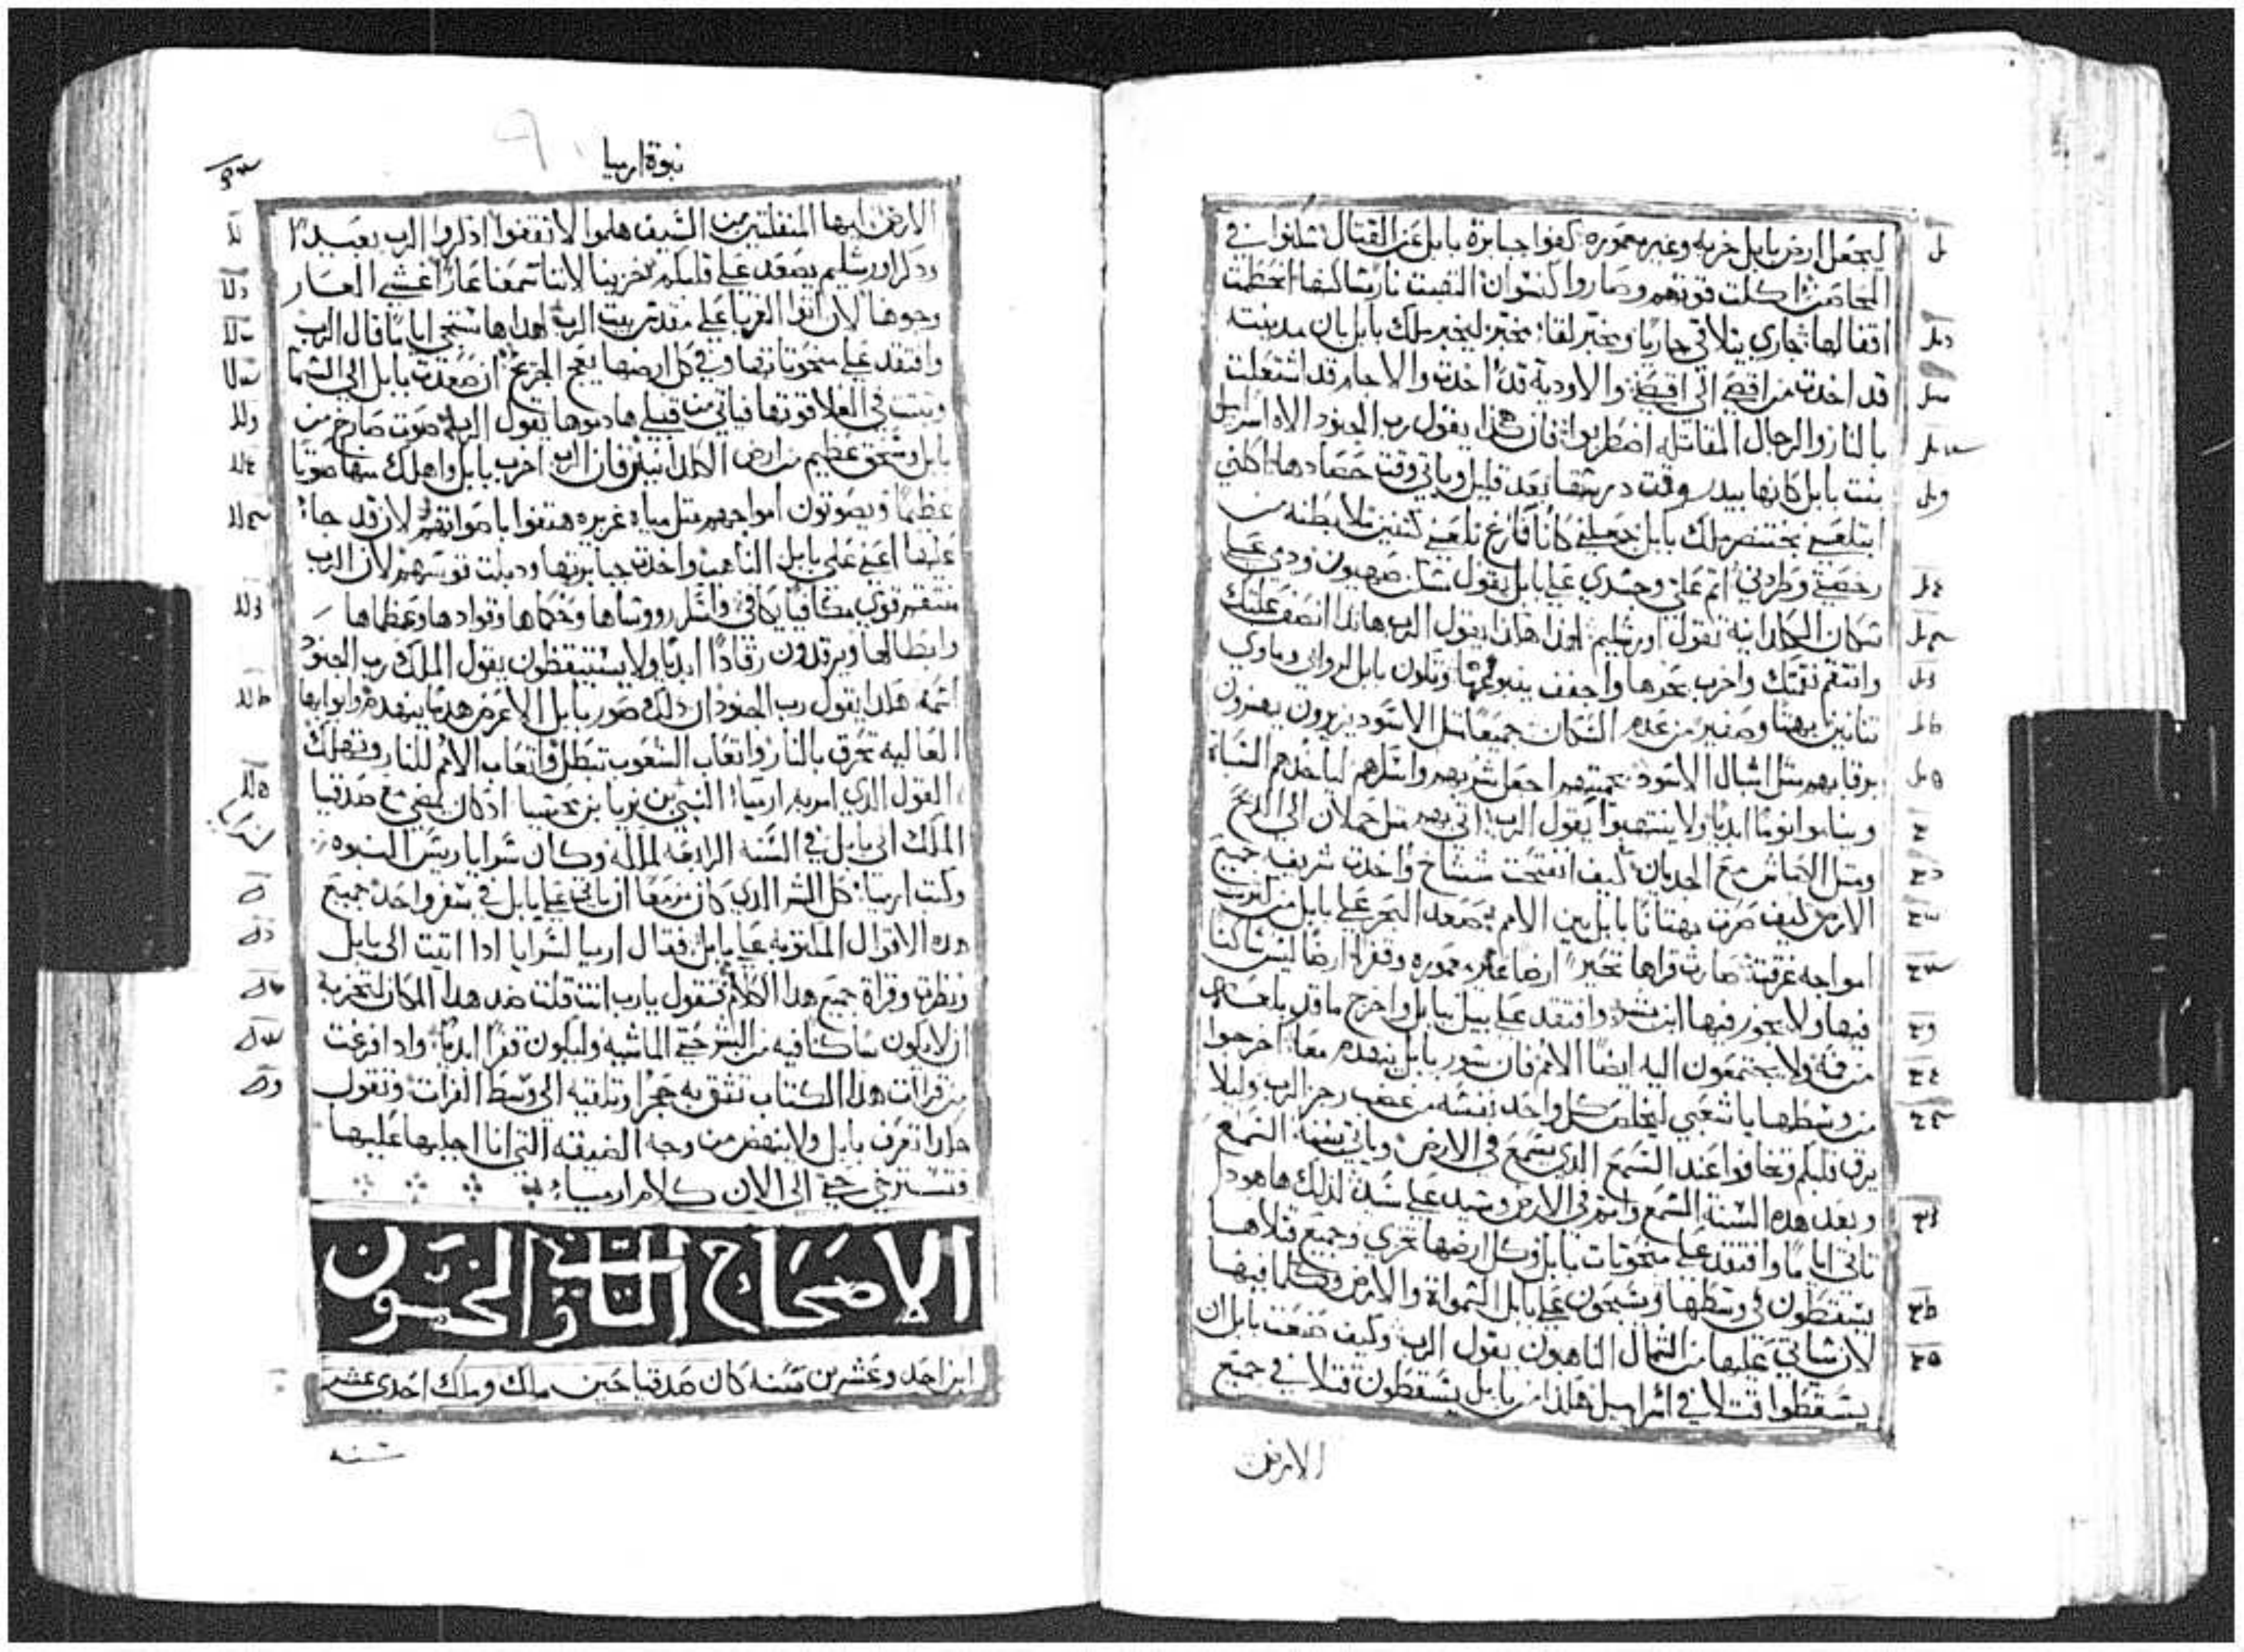 ليجعل ارض بابل خربه وغير معموره كفوا جبابرة بابل عن القتال سكنوا في
المحاصن اكلت قوتهم وصاروا كنسوان التهبت نار مساكنها انحطمت
اقفالها جاري يتلاقي جاريا ومخبر لقا مخبر ليخبر ملك بابل بان مدينته
قد اخدت من اقصي الي اقصي والاودية قد اخدت والاجام قد اشتعلت
بالنار والرجال المقاتله اضطربوا فان هكذا يقول رب الجنود الاه اسراييل
بنت بابل كانها بيدر وقت درسها بعد قليل وياتي وقت حصادها اكلني
ابتلعني بختنصر ملك بابل جعلني كانا فارغ بلعني كتنين ملا بطنه من
رخصتي وطردني اثم علي وجسدي علي بابل يقول سكن صهيون ودمي علي
سكان الكلدانية تقول اورشليم لهذا هكذا يقول الرب هانذا انصف عليك
وانتقم نقمتك واخرب بحرها واجفف ينبوعها وتكون بابل لروابي وماوي
تنانين بهتا وصفير من عدم السكان جميعا مثل الاسود يزيرون يهزون
برقابهم مثل اشبال الاسود بحميتهم اجعل شربهم واسكرهم لياخدهم السباة
وينامو انوما ابديا ولا ينتبهوا يقول الرب اتي بهم مثل حملان الي الدبح
ومثل الكباش مع الجديان كيف انفتحت شيشاخ واخدت شريفة جميع
الارض كيف صرت بهتانا بابل بين الامم صعد البحر علي بابل من كثرت
امواجه غرقت صارت قراها تحير ارضا غير معموره وقفرا ارضا ليس ساكنا
فيها ولا يجوز فيها ابن بشر وافتقد علي بيل ببابل واخرج ما قد بلعه
من فمه ولا يجتمعون اليه ايضا الامم فان سور بابل ينهدم معا اخرجوا
من وسطها يا شعبي ليخلص كل واحد نفسه من غضب رجز الرب وليلا
يرق قلبكم وتخافوا عند السمع الذي يسمع في الارض وياتي بسنة السمع
وبعد هده السنه السمع واثم في الارض وسيد علي سيد لذلك ها هودا
تاتي اياما وافتقد علي منحوتات بابل وكل ارضها تخزي وجميع قتلاها
يسقطون في وسطها ويسبحون علي بابل السمواة والارض وكلما فيها
لان ساتي عليها من الشمال الناهبون يقول الرب وكيف صنعت بابل ان
يسقطوا قتلا في اسراييل هكذا من بابل يسقطون قتلا في جميع
الارض
نبوة ارميا
الارض ايها المنفلتين من السيف هلموا لا تقفوا اذكروا الرب بعيدا
ودكر اورشليم يصعد علي قلبكم خزينا لاننا سمعنا عارا غشي العار
وجوهنا لان اتوا الغربا علي مقدس بيت الرب لهدا ها ستجي اياما قال الرب
وافتقد علي منحوتاتها وفي كل ارضها يعج الجريح ان صعدت بابل الي السما
وثبت في العلا قوتها فياتي من قبلي هادموها يقول الرب صوت صارخ من
بابل وسحق عظيم من ارض الكلدانيين فان الرب اخرب بابل واهلك منها صوتا
عظيما ويصوتون امواجهم مثل مياه غزيره هتفوا باصواتهم لان قد جا
عليها اعني علي بابل الناهب واخدت جبابرتها ودبلت قوسهم لان الرب
منتقم قوي مكافيا يكافي واسكر رووساها وحكماها وقوادها وعظماها
وابطالها ويرقدون رقادا ابديا ولا يستيقظون يقول الملك رب الجنود
اسمه هكذا يقول رب الجنود ان دلك صور بابل الاعرض هدما ينهدم وابوابها
العاليه تحرق بالنار واتعاب الشعوب تبطل واتعاب الامم للنار وتهلك
القول الذي امر به ارميا النبي بن نيريا بن محسيا اذ كان يمضي مع صدقيا
الملك الي بابل في السنه الرابعه لملكه وكان سرايا ريس النبوه
وكتب ارميا كل الشر الذي كان مزمعا ان ياتي علي بابل في سفر واحد جميع
هده الاقوال المكتوبه علي بابل فقال ارميا لسرايا ادا اتيت الي بابل
ونظرت وقراة جميع هدا الكلام فتقول يارب انت قلت ضد هدا المكان لتخربه
ان لا يكون ساكنا فيه من البشر حتي الماشيه وليكون قفرا ابديا وادا فرغت
من قراات هدا الكتاب تثق به حجرا وتلقيه الي وسط الفرات وتقول
هكدا تغرق بابل ولا ينهض من وجه الضيقه التي انا اجلبها عليها
فتسترخي حتي الي الان كلام ارميا
الاصحاح الثاني والخمسون
ابن احد وعشرين سنه كان صدقيا حين ملك وملك احدي عشر
سنه